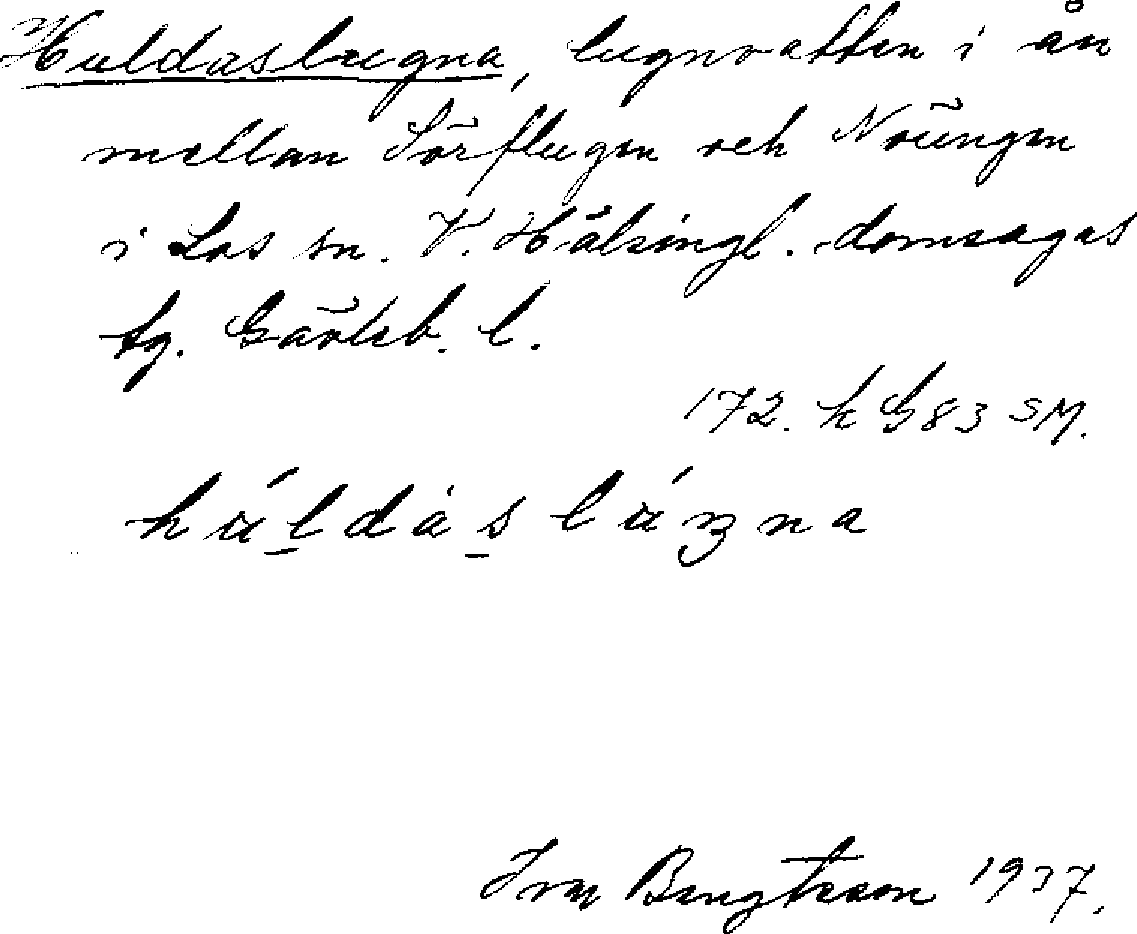 Huldaslugna, lugnvatten i ån
mellan Sörflugen och Noungen
i Los sn. V. Hälsingl. domsagas
tg. Gävleb. l.
172. k G 83 SM.
húldȧslúʒna
Bengtsson 1937.